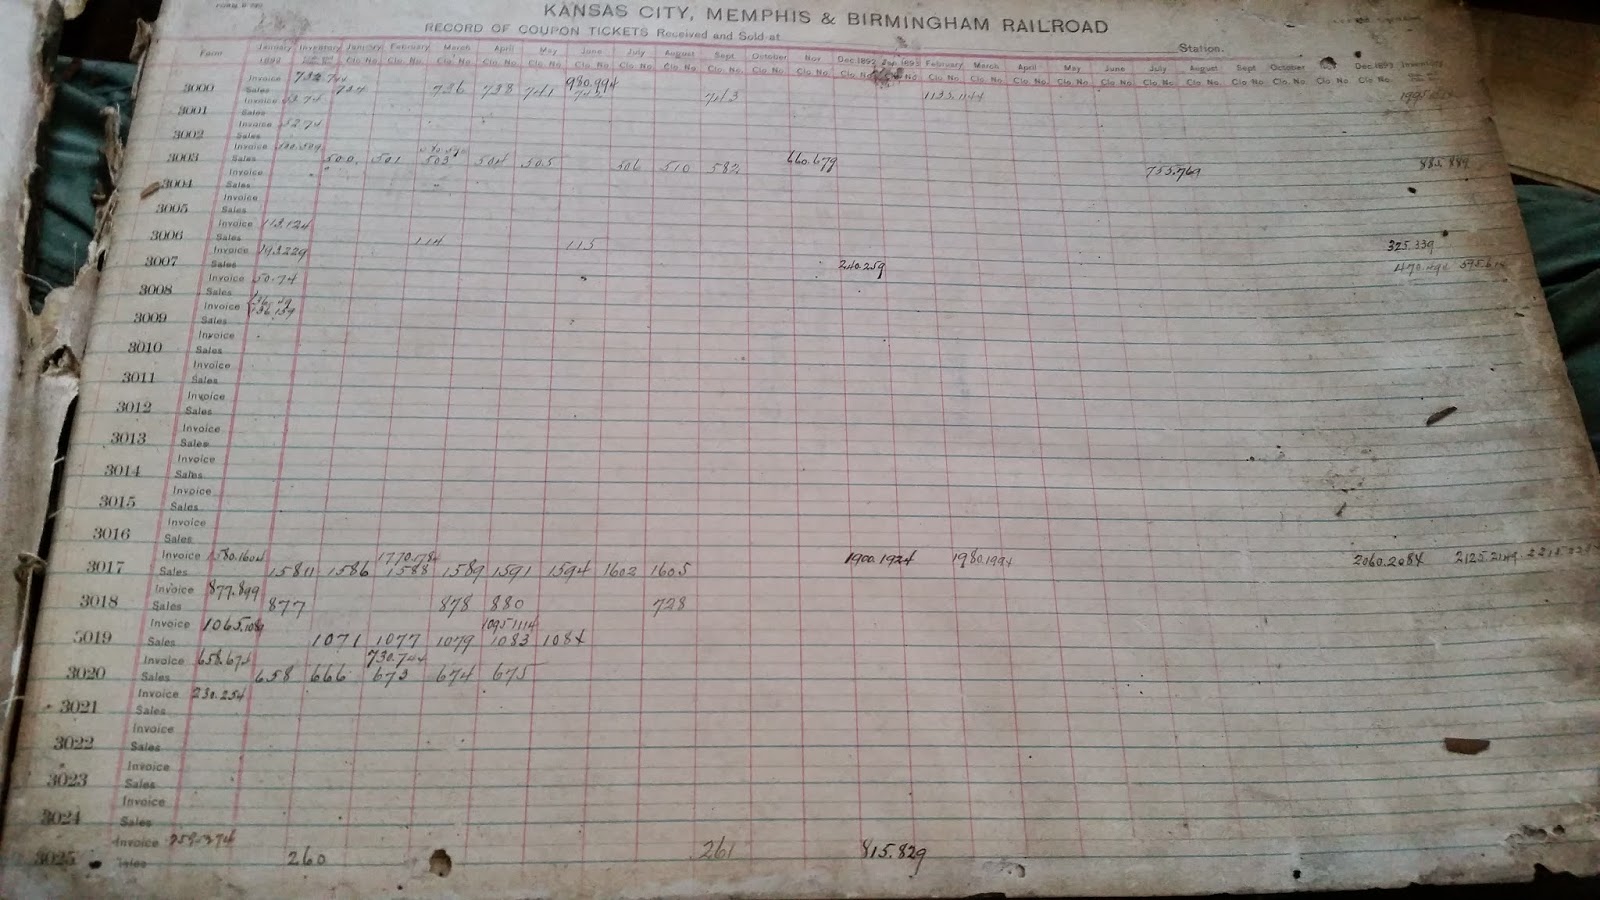 KANSAS CITY, MEMPHIS & BIRMINGHAM RAILROAD
RECORD OF COUPON TICKETS Received and Sold at Station.
Form January Inventory January February March April May June July August Sept October Nov Dec 1892 Jan 1893 February March April May June July August Sept October Dec 1893 Inventory
Clo. No. Clo. No. Clo. No. Clo. No. Clo. No. Clo. No. Clo. No. Clo. No. Clo. No. Clo. No. Clo. No. Clo. No. Clo. No. Clo. No. Clo. No. Clo. No. Clo. No. Clo. No. Clo. No. Clo. No. Clo. No. Clo. No.
Invoice 980.994
3000 Sales 734 736 738 741 743 1133.1144
Invoice
3001 Sales
Invoice 52.74
3002 Sales
Invoice
3003 Sales 500. 501 503 504 505 506 510 582 660.679
Invoice 755.769
3004 Sales
Invoice
3005 Sales
Invoice 113.124
3006 Sales 114 115 325.339
Invoice 193.229
3007 Sales 240.259
Invoice 50.74
3008 Sales
Invoice 136.139
3009 Sales
Invoice
3010 Sales
Invoice
3011 Sales
Invoice
3012 Sales
Invoice
3013 Sales
Invoice
3014 Sales
Invoice
3015 Sales
Invoice
3016 Sales
Invoice 1580.1604 1770.1784 1900.1924 1980.1994 2060.2084 2125.2149
3017 Sales 1586 1588 1589 1591 1594 1602 1605
Invoice 877.899
3018 Sales 877 878 880 728
Invoice 1065.1089 1095.1114
3019 Sales 1071 1077 1079 1083 1084
Invoice 658.674 730.744
3020 Sales 658 666 673 674 675
Invoice 230.254
3021 Sales
Invoice
3022 Sales
Invoice
3023 Sales
Invoice
3024 Sales
Invoice
3025 Sales 260 261 815.829